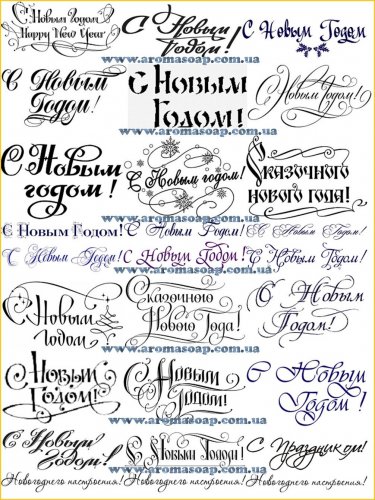 С Новым Годом!
Happy New Year
С Новым
Годом!
С Новым Годом
www.aromasoap.com.ua
С Новым
Годом!
С Новым
Годом!
С Новым Годом!
www.aromasoap.com.ua
С Новым
годом!
С Новым годом!
Сказочного
нового года!
www.aromasoap.com.ua
С Новым Годом!
С Новым Годом!
С Новым Годом!
С Новым Годом!
С Новым Годом!
С Новым Годом!
www.aromasoap.com.ua
С Новым
Годом
Сказочного
Нового Года!
С Новым
Годом!
www.aromasoap.com.ua
С Новым
Годом!
С Новым
Годом!
С Новым
Годом!
www.aromasoap.com.ua
С Новым
Годом!
С Новым Годом!
С Праздником!
Новогоднего настроения!
Новогоднего настроения!
Новогоднего настроения!
www.aromasoap.com.ua